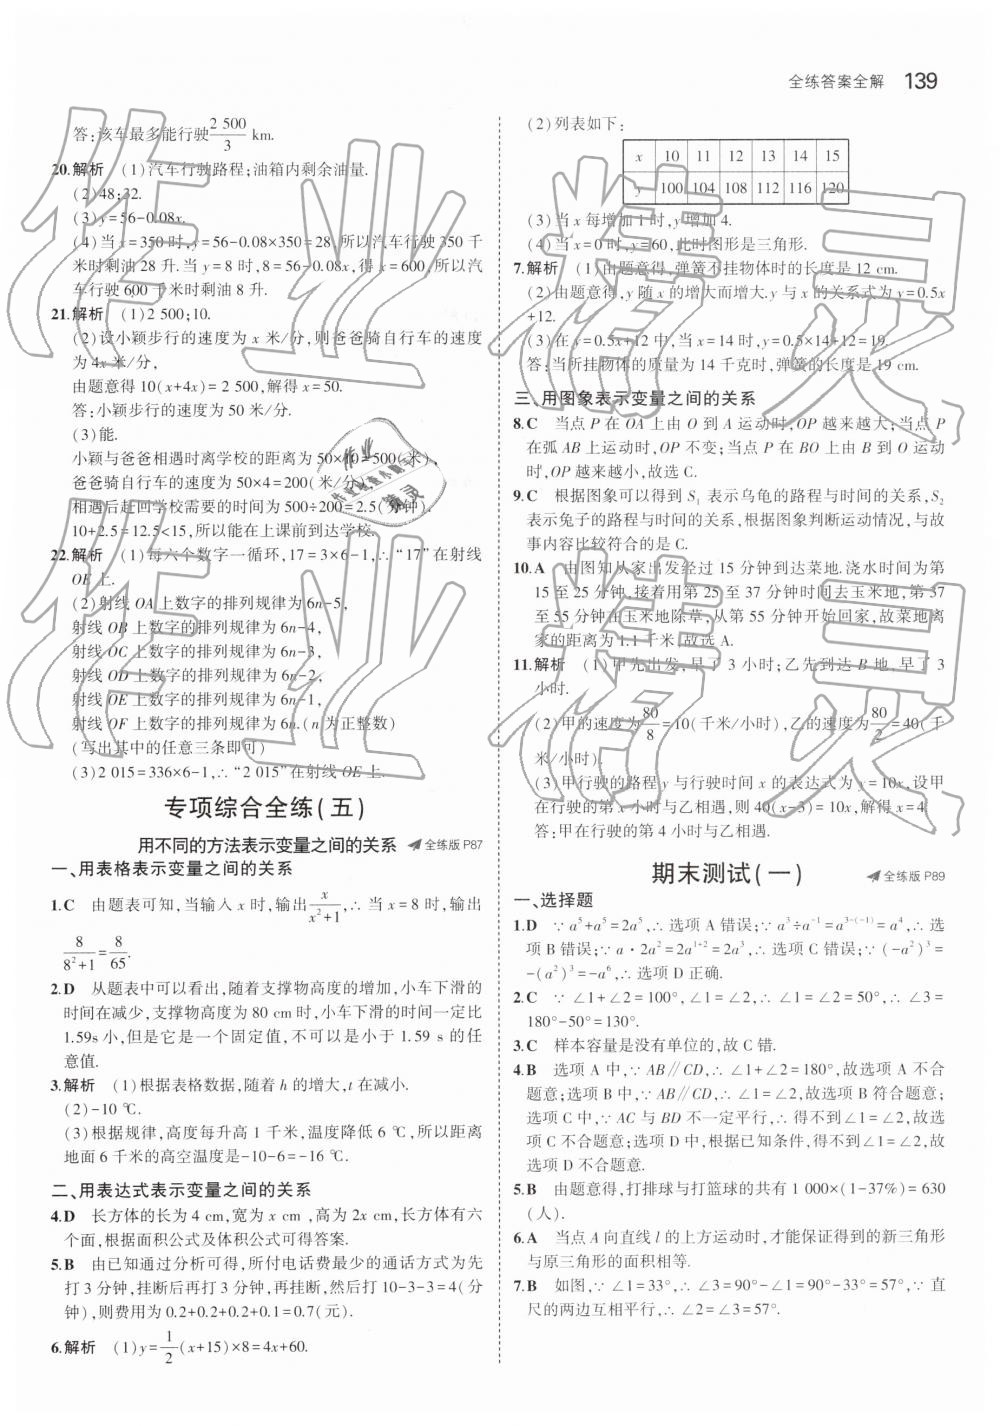 全练答案全解 139
答:该车最多能行驶2 500/3 km.
20.解析 (1)汽车行驶路程;油箱内剩余油量.
(2)48;32.
(3)y=56-0.08x.
(4)当x=350时,y=56-0.08×350=28,所以汽车行驶350千
米时剩油28升.当y=8时,8=56-0.08x,得x=600,所以汽
车行驶600千米时剩油8升.
21.解析 (1)2 500;10.
(2)设小颖步行的速度为x米/分,则爸爸骑自行车的速度
为4x米/分,
由题意得10(x+4x)=2 500,解得x=50.
答:小颖步行的速度为50米/分.
(3)能.
小颖与爸爸相遇时离学校的距离为50×10=500(米),
爸爸骑自行车的速度为50×4=200(米/分),
相遇后赶回学校需要的时间为500÷200=2.5(分钟),
10+2.5=12.5<15,所以能在上课前到达学校.
22.解析 (1)每六个数字一循环,17=3×6-1,∴“17”在射线
OE上.
(2)射线OA上数字的排列规律为6n-5,
射线OB上数字的排列规律为6n-4,
射线OC上数字的排列规律为6n-3,
射线OD上数字的排列规律为6n-2,
射线OE上数字的排列规律为6n-1,
射线OF上数字的排列规律为6n.(n为正整数)
(写出其中的任意三条即可)
(3)2 015=336×6-1,∴“2 015”在射线OE上.
专项综合全练(五)
用不同的方法表示变量之间的关系 全练版P87
一、用表格表示变量之间的关系
1.C 由题表可知,当输入x时,输出x/(x²+1),∴当x=8时,输出
8/(8²+1)=8/65.
2.D 从题表中可以看出,随着支撑物高度的增加,小车下滑的
时间在减少,支撑物高度为80 cm时,小车下滑的时间一定比
1.59s小,但是它是一个固定值,不可以是小于1.59 s的任
意值.
3.解析 (1)根据表格数据,随着h的增大,t在减小.
(2)-10 ℃.
(3)根据规律,高度每升高1千米,温度降低6 ℃,所以距离
地面6千米的高空温度是-10-6=-16 ℃.
二、用表达式表示变量之间的关系
4.D 长方体的长为4 cm,宽为x cm,高为2x cm,长方体有六
个面,根据面积公式及体积公式可得答案.
5.B 由已知通过分析可得,所付电话费最少的通话方式为先
打3分钟,挂断后再打3分钟,再挂断,然后打10-3-3=4(分
钟),则费用为0.2+0.2+0.2+0.1=0.7(元).
6.解析 (1)y=1/2(x+15)×8=4x+60.
(2)列表如下:
x 10 11 12 13 14 15
y 100 104 108 112 116 120
(3)当x每增加1时,y增加4.
(4)当x=0时,y=60,此时图形是三角形.
7.解析 (1)由题意得,弹簧不挂物体时的长度是12 cm.
(2)由题意得,y随x的增大而增大.y与x的关系式为y=0.5x
+12.
(3)在y=0.5x+12中,当x=14时,y=0.5×14+12=19.
答:当所挂物体的质量为14千克时,弹簧的长度是19 cm.
三、用图象表示变量之间的关系
8.C 当点P在OA上由O到A运动时,OP越来越大;当点P
在弧AB上运动时,OP不变;当点P在BO上由B到O运动
时,OP越来越小,故选C.
9.C 根据图象可以得到S₁表示乌龟的路程与时间的关系,S₂
表示兔子的路程与时间的关系,根据图象判断运动情况,与故
事内容比较符合的是C.
10.A 由图知从家出发经过15分钟到达菜地.浇水时间为第
15至25分钟,接着用第25至37分钟时间去玉米地,第37
至55分钟在玉米地除草,从第55分钟开始回家,故菜地离
家的距离为1.1千米,故选A.
11.解析 (1)甲先出发,早了3小时;乙先到达B地,早了3
小时.
(2)甲的速度为80/8=10(千米/小时),乙的速度为80/2=40(千
米/小时).
(3)甲行驶的路程y与行驶时间x的表达式为y=10x,设甲
在行驶的第x小时与乙相遇,则40(x-3)=10x,解得x=4.
答:甲在行驶的第4小时与乙相遇.
期末测试(一) 全练版P89
一、选择题
1.D ∵a⁵+a⁵=2a⁵,∴选项A错误;∵a³÷a⁻¹=a³⁻⁽⁻¹⁾=a⁴,∴选
项B错误;∵a·2a²=2a¹⁺²=2a³,∴选项C错误;∵(-a²)³=
-(a²)³=-a⁶,∴选项D正确.
2.C ∵∠1+∠2=100°,∠1=∠2,∴∠1=∠2=50°,∴∠3=
180°-50°=130°.
3.C 样本容量是没有单位的,故C错.
4.B 选项A中,∵AB∥CD,∴∠1+∠2=180°,故选项A不合
题意;选项B中,∵AB∥CD,∴∠1=∠2,故选项B符合题意;
选项C中,∵AC与BD不一定平行,∴得不到∠1=∠2,故选
项C不合题意;选项D中,根据已知条件,得不到∠1=∠2,故
选项D不合题意.
5.B 由题意得,打排球与打篮球的共有1 000×(1-37%)=630
(人).
6.A 当点A向直线l的上方运动时,才能保证得到的新三角形
与原三角形的面积相等.
7.B 如图,∵∠1=33°,∴∠3=90°-∠1=90°-33°=57°,∵直
尺的两边互相平行,∴∠2=∠3=57°.
作业精灵
作业精灵